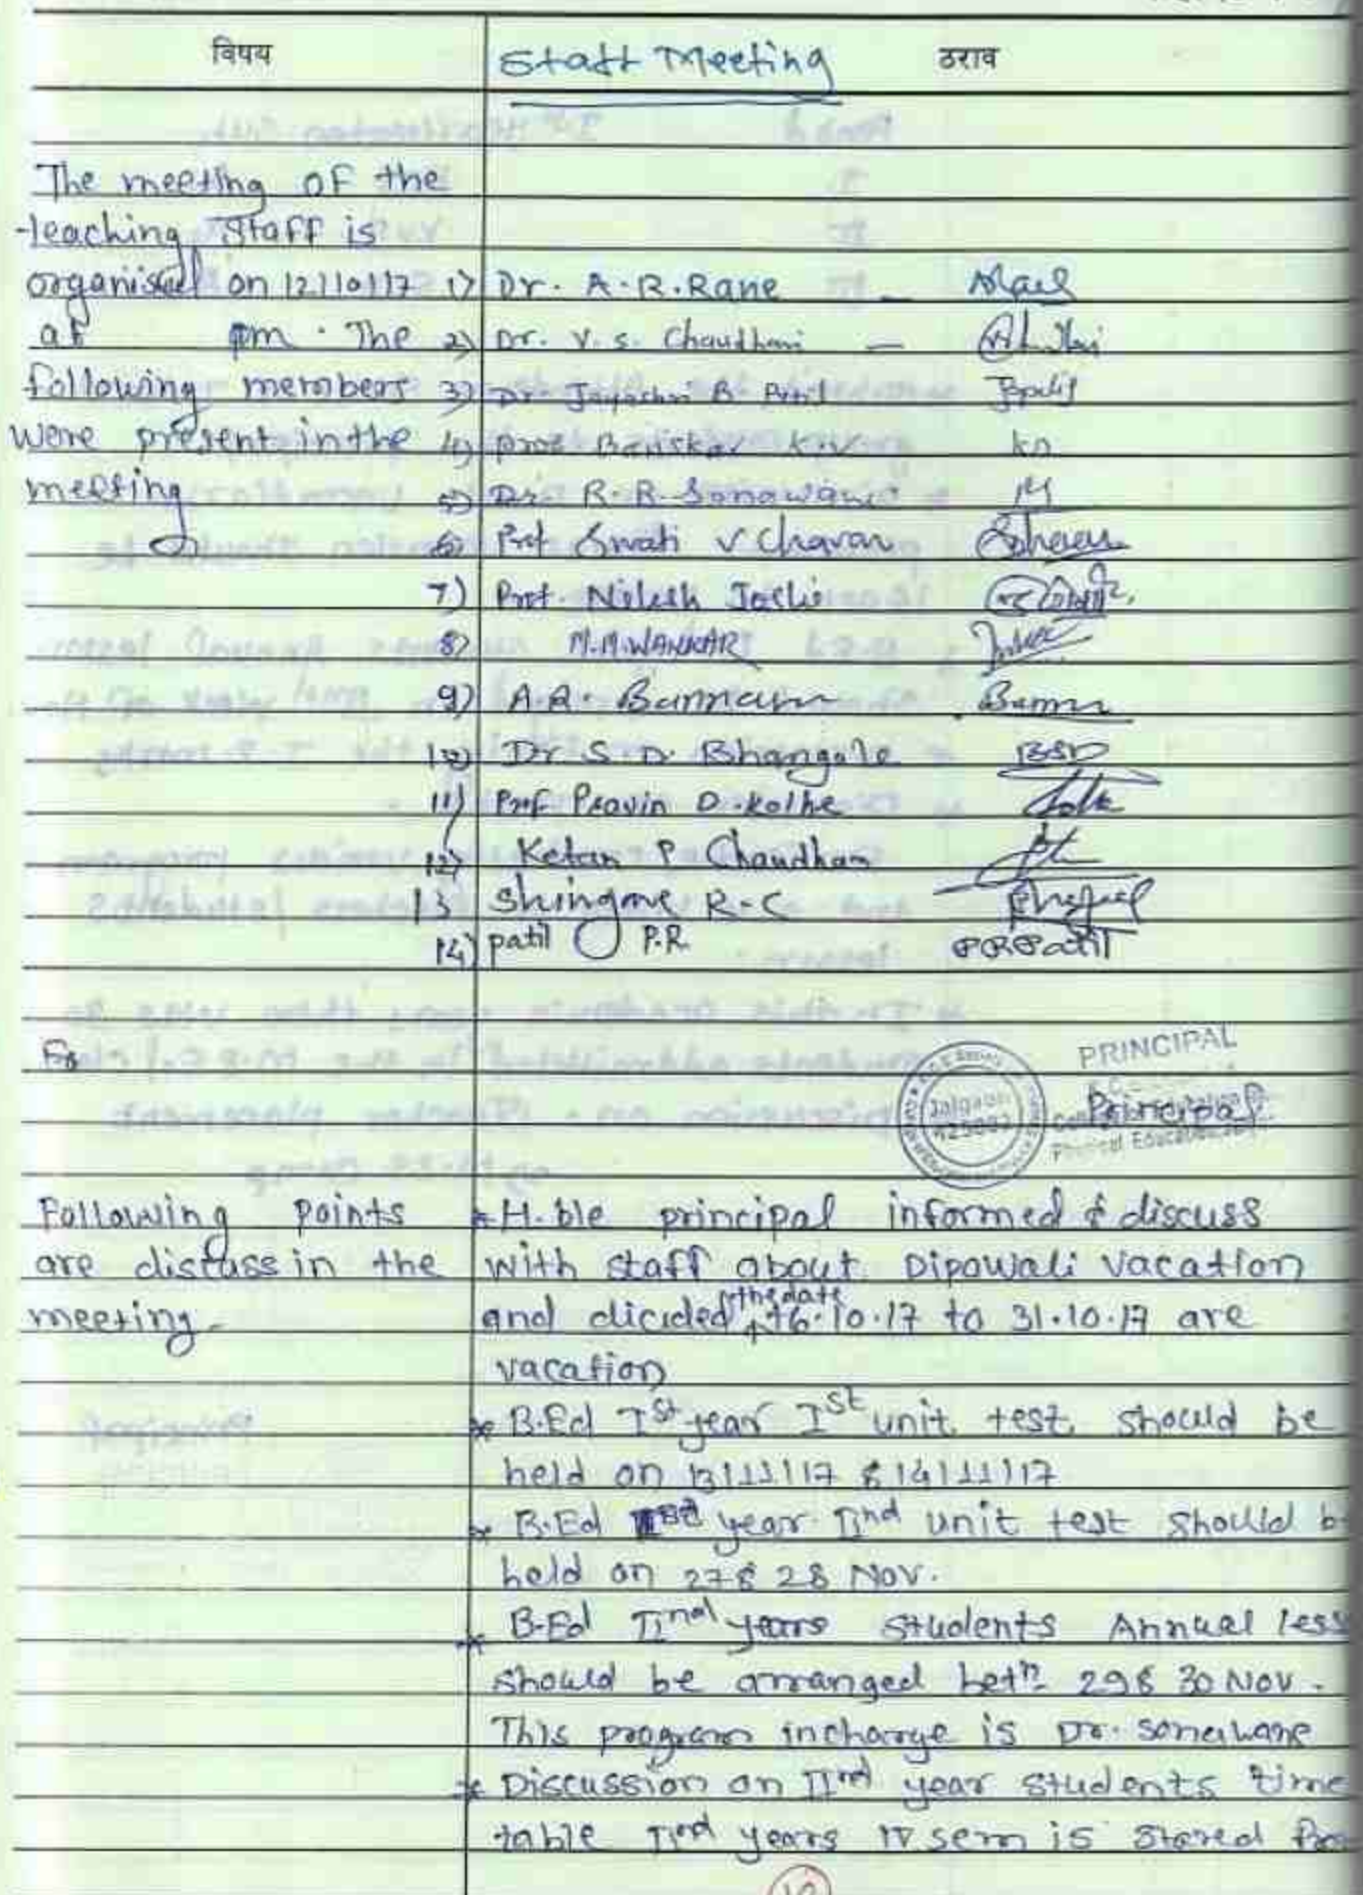 विषय
Staff Meeting
ठराव
The meeting of the
teaching staff is
organised on 12/10/17
at pm. The
following members
were present in the
meeting
1) Dr. A.R. Rane
2) Dr. V.S. Chaudhari
3) Dr. Jayashri B Patil
4) Prof. Bariskar K.V
5) Dr. R.R. Sonawane
6) Prof Swati V Chavan
7) Prof. Nilesh Joshi
8) M.M. WANKAR
9) A.R.
10) Dr S.D. Bhangale BSD
11) Prof Pravin D. Kolhe
12) Ketan P Chaudhari
13 Shingane R.C
14) Patil P.R. PRPatil
PRINCIPAL
Principal
Jalgaon
425002
Physical Education
Following points
are discuss in the
meeting
* H.ble principal informed & discuss
with staff about Dipawali vacation
and dicided the date 16.10.17 to 31.10.17 are
vacation
* B.Ed Ist year Ist unit test should be
held on 13/11/17 & 14/11/17
* B.Ed Ist year IInd unit test should b
held on 27 & 28 Nov.
* B.Ed IInd years students Annual less
should be arranged betn 29 & 30 Nov.
This program incharge is Dr. Sonawane
* Discussion on IInd year students time
table IInd years IV sem is stared from